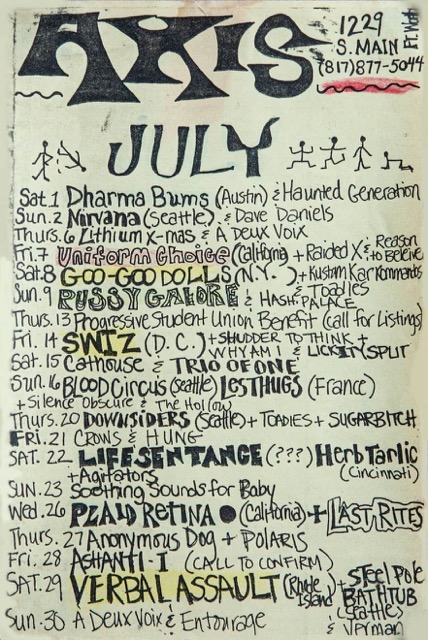 AXIS
1229
S. MAIN
Ft. Worth
(817) 877-5044
JULY
Sat. 1 Dharma Bums (Austin) & Haunted Generation
Sun. 2 Nirvana (Seattle) & Dave Daniels
Thurs. 6 Lithium X-mas & A Deux Voix
Fri. 7 Uniform Choice (California) + Raided X & Reason to Beleive
Sat. 8 GOO-GOO DOLLS (N.Y.) + Kustom Kar Kommandos
Sun. 9 PUSSY GALORE & Toadies & HASH PALACE
Thurs. 13 Progressive Student Union Benefit (call for Listings)
Fri. 14 SWIZ (D.C.) + SHUDDER TO THINK +
WHY AM I & LICKITY SPLIT
Sat. 15 Cathouse & TRIO OF ONE
Sun. 16 BLOOD Circus (Seattle) LES THUGS (France)
+ Silence Obscure & The Hollow
Thurs. 20 DOWNSIDERS (Seattle) + TOADIES + SUGARBITCH
Fri. 21 CROWS & HUNG
SAT. 22 LIFE SENTANCE (???) Herb Tarlic
(Cincinnati)
+ Agitators
SUN. 23 Soothing Sounds for Baby
Wed. 26 PLAID RETINA (California) + LAST RITES
Thurs. 27 Anonymous Dog + POLARIS
Fri. 28 ASHANTI-I (CALL TO CONFIRM)
SAT. 29 VERBAL ASSAULT (Rhode Island) + STEEL Pole BATHTUB (Seattle)
Sun. 30 A Deux Voix & Entourage & Verman